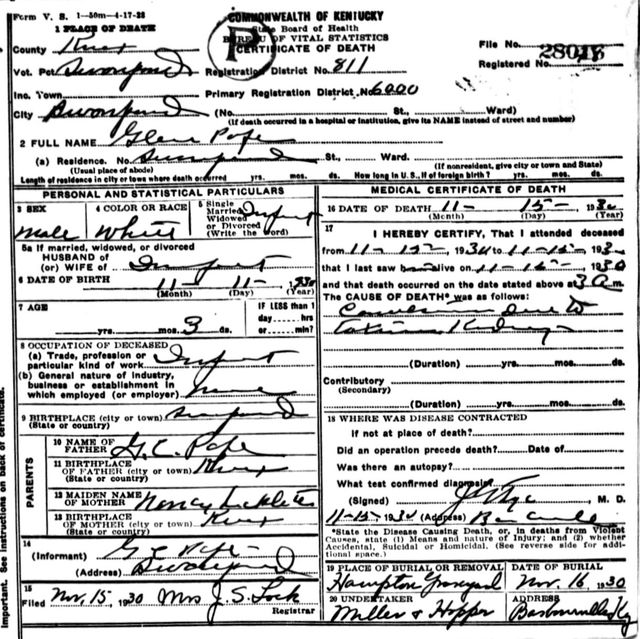 Form V. S. 1—50m—4-17-28
COMMONWEALTH OF KENTUCKY
State Board of Health
BUREAU OF VITAL STATISTICS
CERTIFICATE OF DEATH
P
1 PLACE OF DEATH
County Knox
File No. 28016
Registered No.
Vot. Pct. Registration District No. 811
Inc. Town Primary Registration District No. 6000
City (No. St., Ward)
(If death occurred in a hospital or institution, give its NAME instead of street and number)
2 FULL NAME Glenn Pope
(a) Residence. No. St., Ward.
(Usual place of abode) (If nonresident, give city or town and State)
Length of residence in city or town where death occurred yrs. mos. ds. How long in U. S., if of foreign birth? yrs. mos. ds.
PERSONAL AND STATISTICAL PARTICULARS
3 SEX
Male
4 COLOR OR RACE
White
5 Single
Married
Widowed
or Divorced
(Write the word)
Infant
5a If married, widowed, or divorced
HUSBAND of
(or) WIFE of Infant
6 DATE OF BIRTH 11 - 11 - 1930
(Month) (Day) (Year)
7 AGE
yrs. mos. 3 ds.
IF LESS than 1
day hrs
or min?
8 OCCUPATION OF DECEASED
(a) Trade, profession or
particular kind of work Infant
(b) General nature of industry,
business or establishment in
which employed (or employer) none
9 BIRTHPLACE (city or town)
(State or country)
PARENTS
10 NAME OF
FATHER G. C. Pope
11 BIRTHPLACE
OF FATHER (city or town) Knox
(State or country)
12 MAIDEN NAME
OF MOTHER Nancy
13 BIRTHPLACE
OF MOTHER (city or town) Knox
(State or country)
14
(Informant) G C Pope
(Address)
15
Filed Nov. 15, 1930 Mrs J. S. Lock
Registrar
MEDICAL CERTIFICATE OF DEATH
16 DATE OF DEATH 11 - 15 - 1930
(Month) (Day) (Year)
17
I HEREBY CERTIFY, That I attended deceased
from 11-15-, 1930 to 11-15-, 1930
that I last saw h alive on 11-15-, 1930
and that death occurred on the date stated above at 3 a m.
The CAUSE OF DEATH* was as follows:
due to
Kidney
(Duration) yrs. mos. ds.
Contributory
(Secondary)
(Duration) yrs. mos. ds.
18 WHERE WAS DISEASE CONTRACTED
If not at place of death?
Did an operation precede death? Date of
Was there an autopsy?
What test confirmed diagnosis?
(Signed) M. D.
11-15-1930 (Address)
*State the Disease Causing Death, or, in deaths from Violent
Causes, state (1) Means and nature of Injury; and (2) whether
Accidental, Suicidal or Homicidal. (See reverse side for addi-
tional space.)
19 PLACE OF BURIAL OR REMOVAL
Hampton Graveyard
DATE OF BURIAL
Nov. 16 1930
20 UNDERTAKER
Miller & Hopper
ADDRESS
Barbourville Ky
important. See instructions on back of certificate.